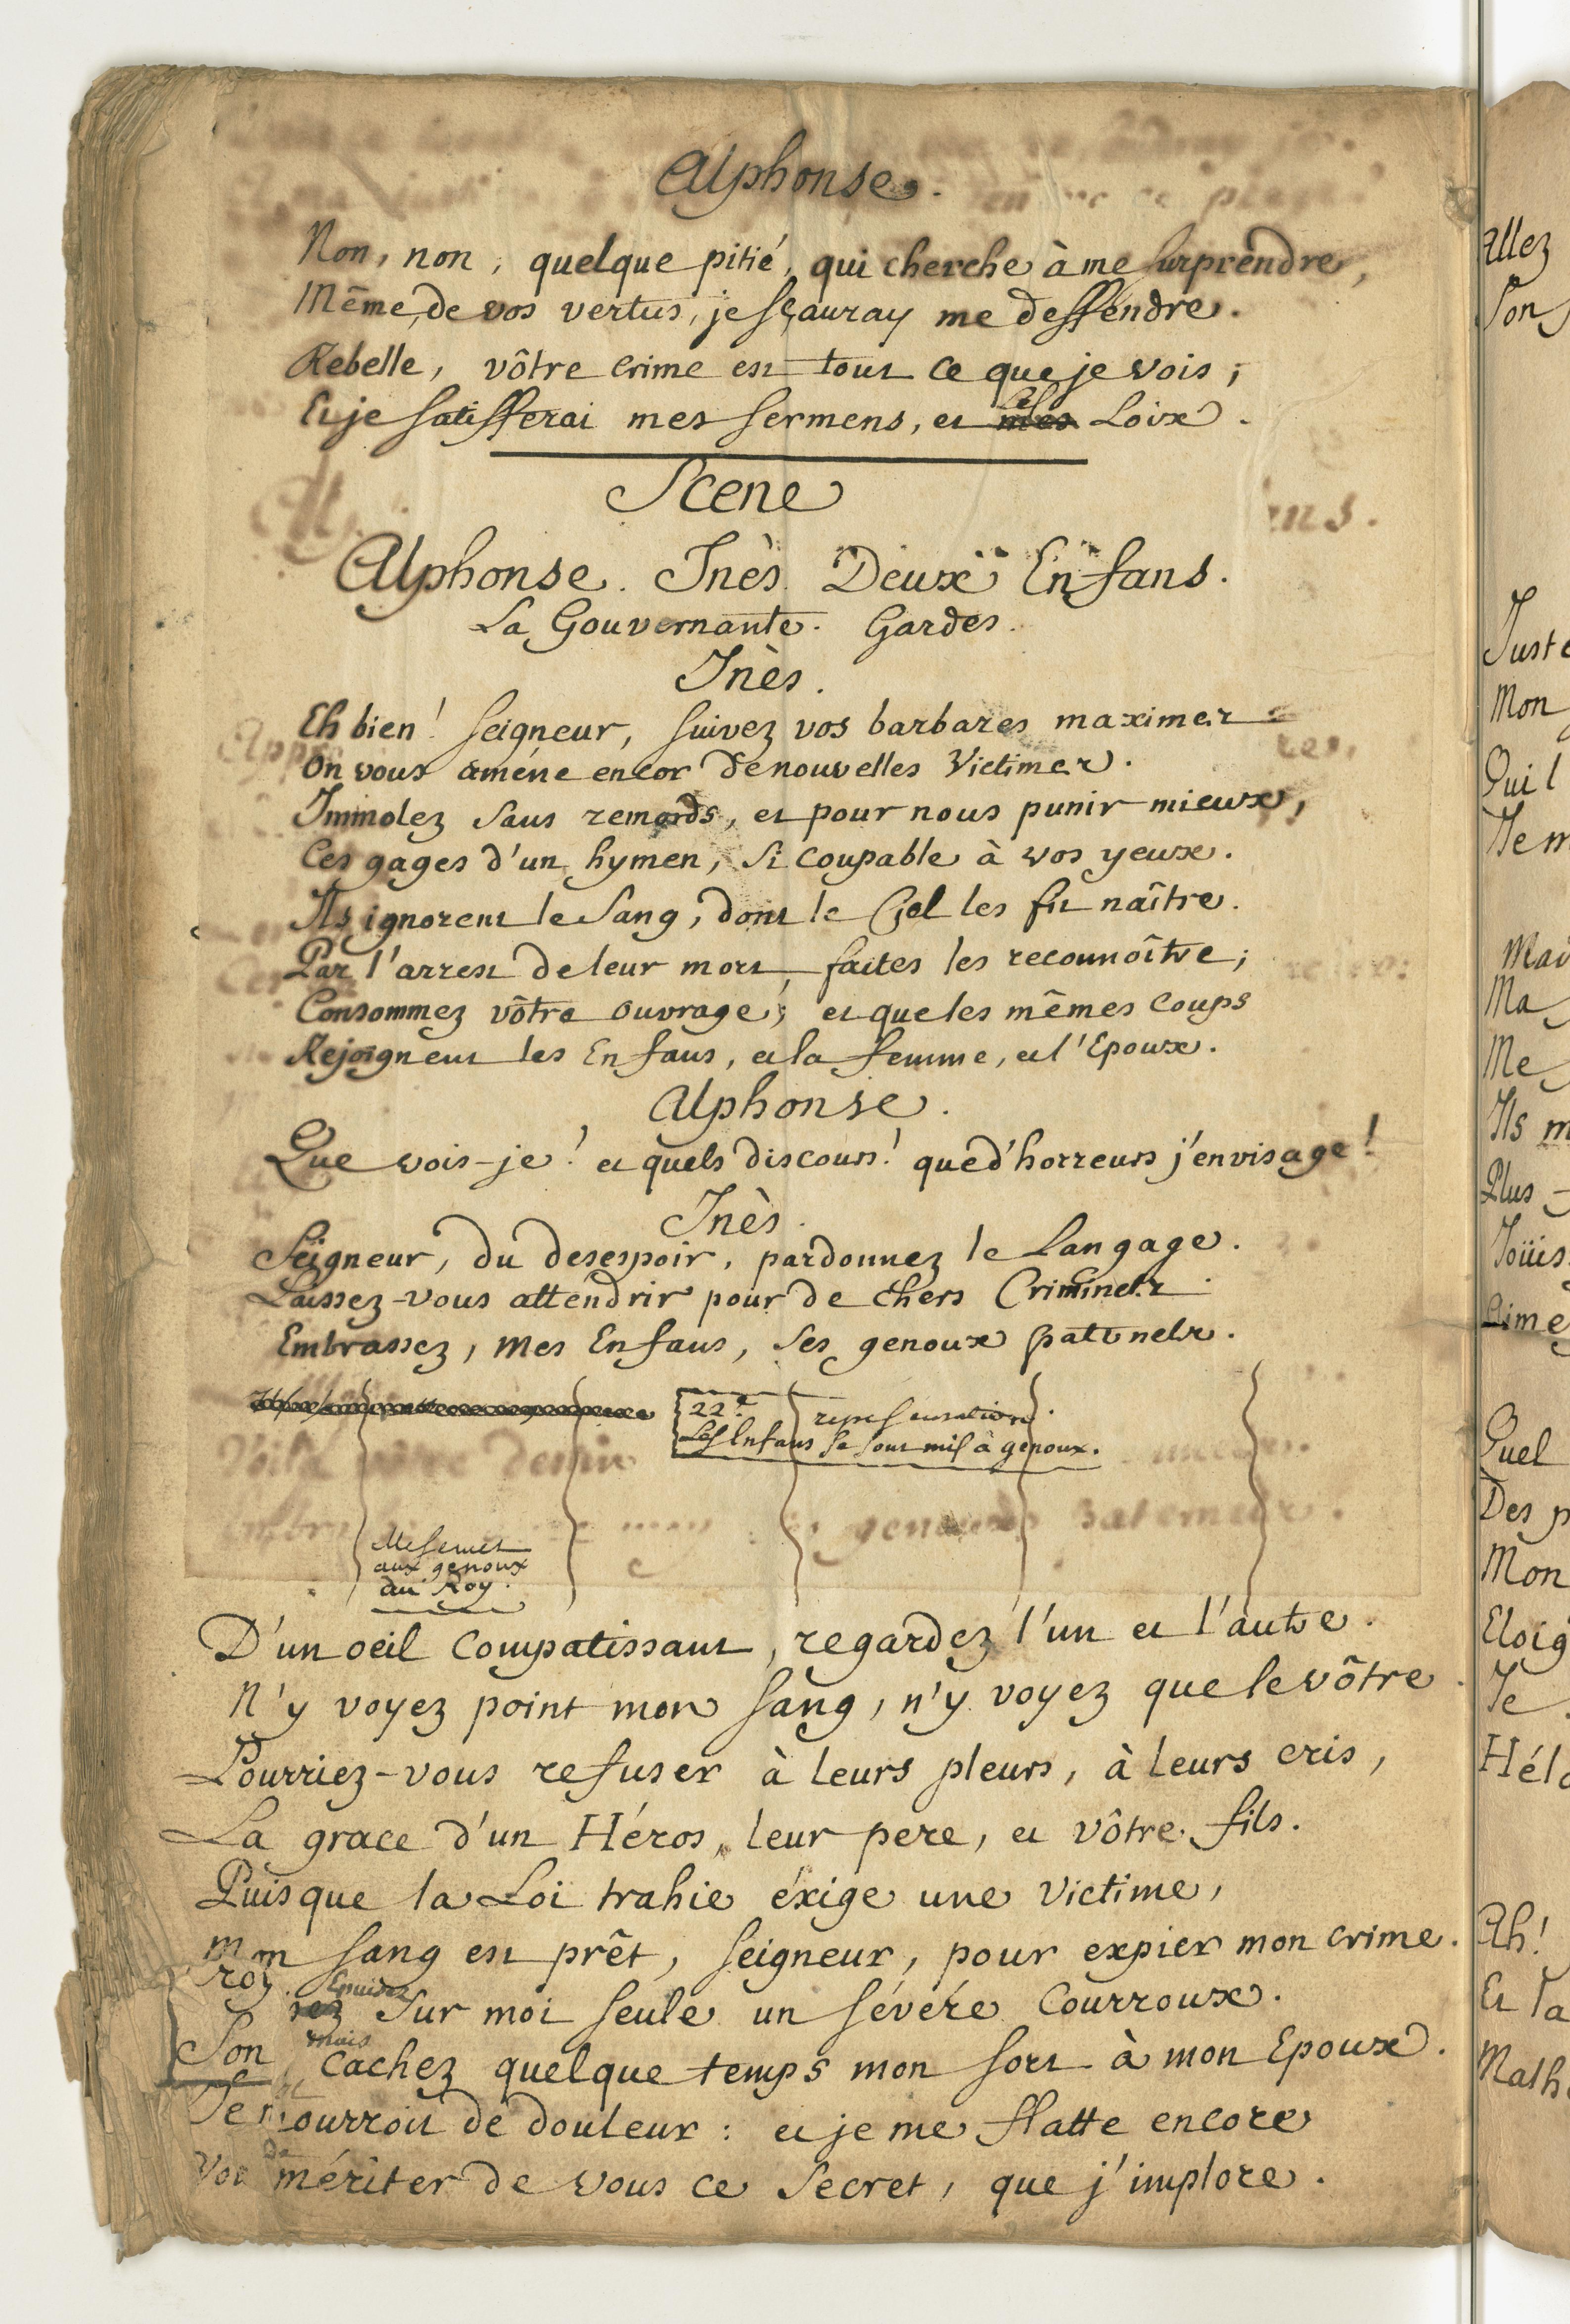 Alphonse.
Non, non, quelque pitié, qui cherche à me surprendre,
Même, de vos vertus, je sçauray me deffendre.
Rebelle, vôtre crime est tout ce que je vois;
Et je satisfferai mes sermens, et mes Loix.
Scene
Alphonse. Inès. Deux Enfans.
La Gouvernante. Gardes.
Inès.
Eh bien! seigneur, suivez vos barbares maximes
On vous améne encor de nouvelles Victimes.
Immolez sans remords, et pour nous punir mieux,
Ces gages d'un hymen, si coupable à vos yeux.
Ils ignorent le Sang, dont le Ciel les fit naître.
Par l'arrest de leur mort, faites les reconnoître;
Consommez vôtre ouvrage; et que les mêmes coups
Rejoignent les Enfans, et la femme, et l'Epoux.
Alphonse.
Que vois-je! et quels discours! que d'horreurs j'envisage!
Inès.
Seigneur, du desespoir, pardonnez le Langage.
Laissez-vous attendrir pour de chers Criminels.
Embrassez, mes Enfans, ses genoux paternels.
22e. representation.
Les Enfans se sont mis à genoux.
Elle se met
aux genoux
du Roy.
D'un oeil compatissant, regardez l'un et l'autre.
N'y voyez point mon sang, n'y voyez que le vôtre.
Pourriez-vous refuser à leurs pleurs, à leurs cris,
La grace d'un Héros, leur pere, et vôtre fils.
Puisque la Loi trahie éxige une victime,
Mon sang est prêt, seigneur, pour expier mon crime.
roy. Epuisez
Sur moi seule un sévére Courroux.
Son mais
cachez quelque temps mon sort à mon Epoux.
mourroit de douleur: et je me flatte encore
de mériter de vous ce secret, que j'implore.
Allez
Son
Juste
Mon
Qu'il
Je m
Mai
Ma
Me
Ils m
Plus
Joüis
Aime
Quel
Des p
Mon
Eloig
Je
Héla
Ah!
Et la
Malh